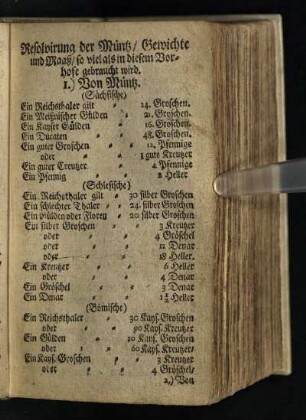 Resolvirung der Müntz/ Gewichte
und Maaß/ so viel als in diesem Vor-
hofe gebraucht wird.
1.) Von Müntz.
(Sächsische)
Ein Reichsthaler gilt „ 24. Groschen.
Ein Meißnischer Gülden „ 21. Groschen.
Ein Kayser Gülden „ „ 16. Groschen.
Ein Ducaten „ „ 48. Groschen.
Ein guter Groschen „ „ 12. Pfennige
oder „ „ 3 gute Kreutzer
Ein guter Creutzer „ „ 4 Pfennige
Ein Pfennig „ „ 2 Heller
(Schlesische)
Ein Reichsthaler gilt „ 30 silber Groschen
Ein schlechter Thaler „ 24. silber Groschen
Ein Gülden oder Floren „ 20 silber Groschen
Ein silber Groschen „ „ 3 Kreutzer
oder „ „ 4 Gröschel
oder „ „ 12 Denar
oder „ „ 18 Heller.
Ein Kreutzer „ „ 6 Heller
oder „ „ 4 Denar
Ein Gröschel „ „ 3 Denar
Ein Denar „ „ 1½ Heller
(Bömische)
Ein Reichsthaler „ 30 Kays. Groschen
oder „ 90 Kays. Kreutzer
Ein Gülden „ 20 Kays. Groschen
oder „ 60 Kays. Kreutzer
Ein Kays. Groschen „ „ 3 Kreutzer
oder „ „ 4 Gröschel
2.) Von